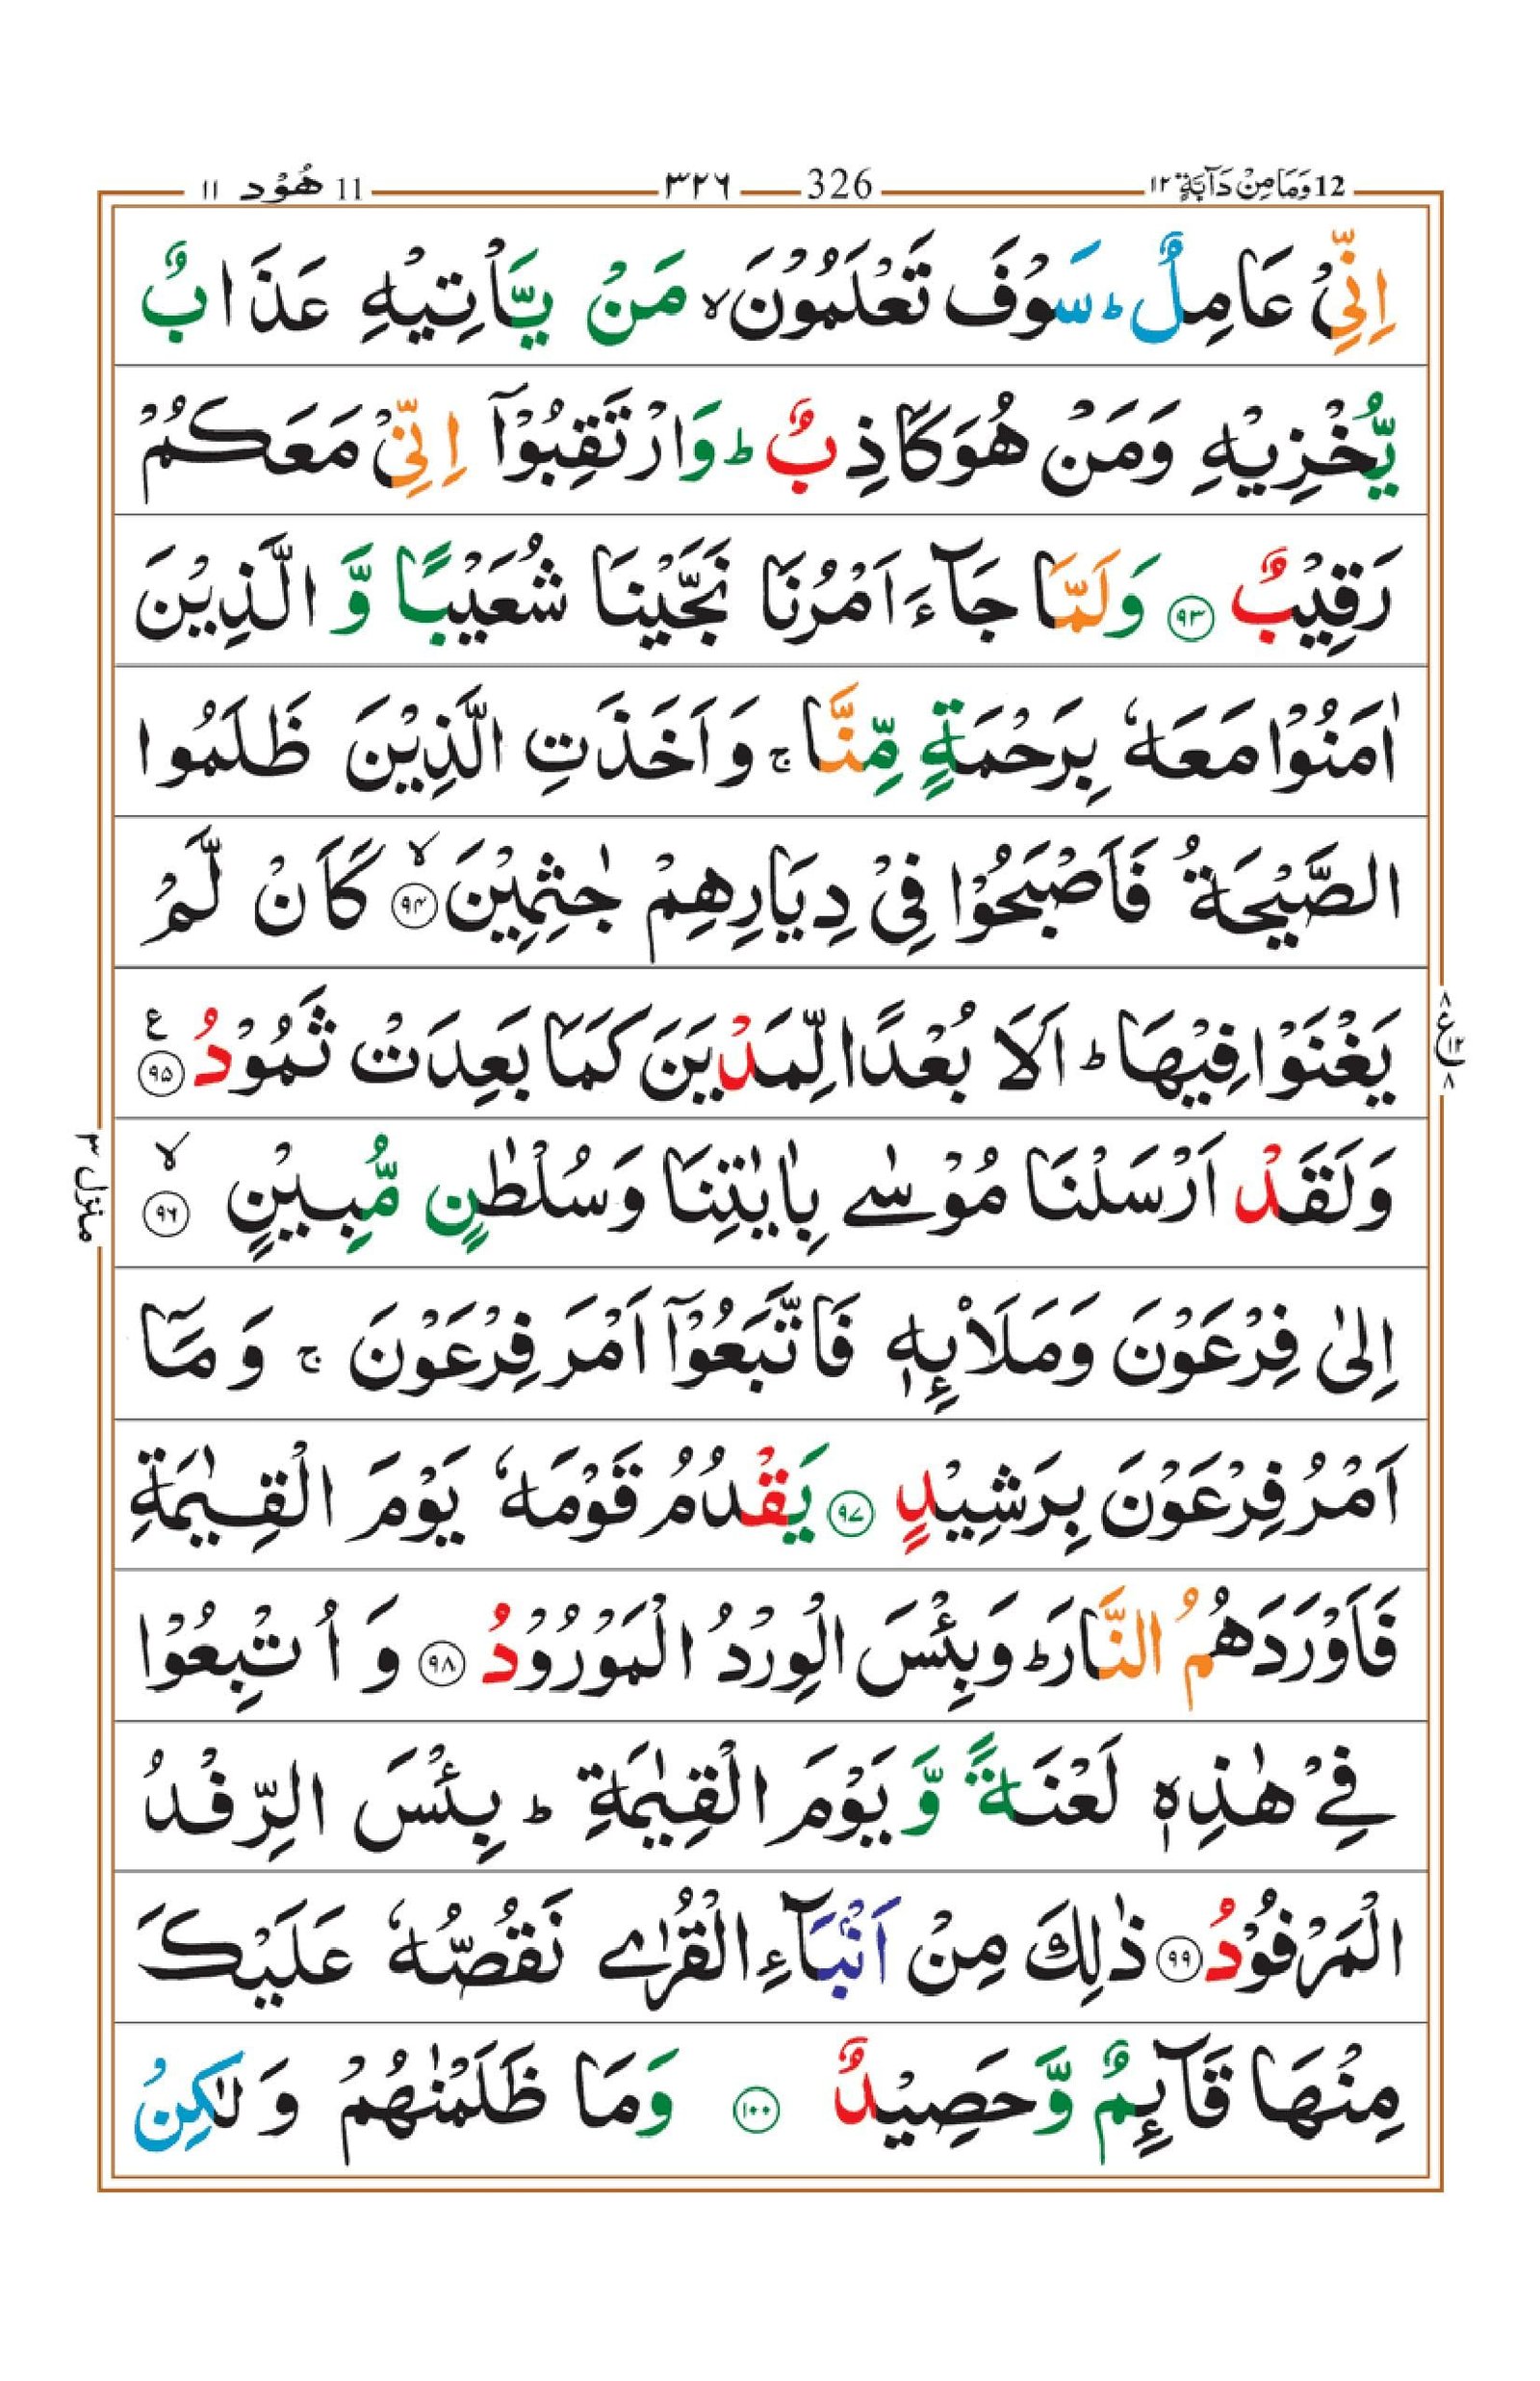 12 وَمَا مِنْ دَآبَّةٍ ۱۲ 326 ۳۲۶ 11 هُوْد ۱۱
اِنِّىْ عَامِلٌ ؕ سَوْفَ تَعْلَمُوْنَ ۙ مَنْ يَّاْتِيْهِ عَذَابٌ
يُّخْزِيْهِ وَمَنْ هُوَ كَاذِبٌ ؕ وَارْتَقِبُوْۤا اِنِّىْ مَعَكُمْ
رَقِيْبٌ ۹۳ وَلَمَّا جَآءَ اَمْرُنَا نَجَّيْنَا شُعَيْبًا وَّ الَّذِيْنَ
اٰمَنُوْا مَعَهٗ بِرَحْمَةٍ مِّنَّا ۚ وَ اَخَذَتِ الَّذِيْنَ ظَلَمُوا
الصَّيْحَةُ فَاَصْبَحُوْا فِىْ دِيَارِهِمْ جٰثِمِيْنَ ۙ ۹۴ كَاَنْ لَّمْ
يَغْنَوْا فِيْهَا ؕ اَلَا بُعْدًا لِّمَدْيَنَ كَمَا بَعِدَتْ ثَمُوْدُ ع ۹۵
۸ ع ۱۲ ۸
وَلَقَدْ اَرْسَلْنَا مُوْسٰى بِاٰيٰتِنَا وَسُلْطٰنٍ مُّبِيْنٍ ۙ ۹۶
منزل ۳
اِلٰى فِرْعَوْنَ وَمَلَا۟ئِهٖ فَاتَّبَعُوْۤا اَمْرَ فِرْعَوْنَ ۚ وَ مَاۤ
اَمْرُ فِرْعَوْنَ بِرَشِيْدٍ ۹۷ يَقْدُمُ قَوْمَهٗ يَوْمَ الْقِيٰمَةِ
فَاَوْرَدَهُمُ النَّارَ ؕ وَبِئْسَ الْوِرْدُ الْمَوْرُوْدُ ۹۸ وَ اُتْبِعُوْا
فِىْ هٰذِهٖ لَعْنَةً وَّ يَوْمَ الْقِيٰمَةِ ؕ بِئْسَ الرِّفْدُ
الْمَرْفُوْدُ ۹۹ ذٰلِكَ مِنْ اَنْۢبَآءِ الْقُرٰى نَقُصُّهٗ عَلَيْكَ
مِنْهَا قَآئِمٌ وَّحَصِيْدٌ ۱۰۰ وَمَا ظَلَمْنٰهُمْ وَلٰكِنْ